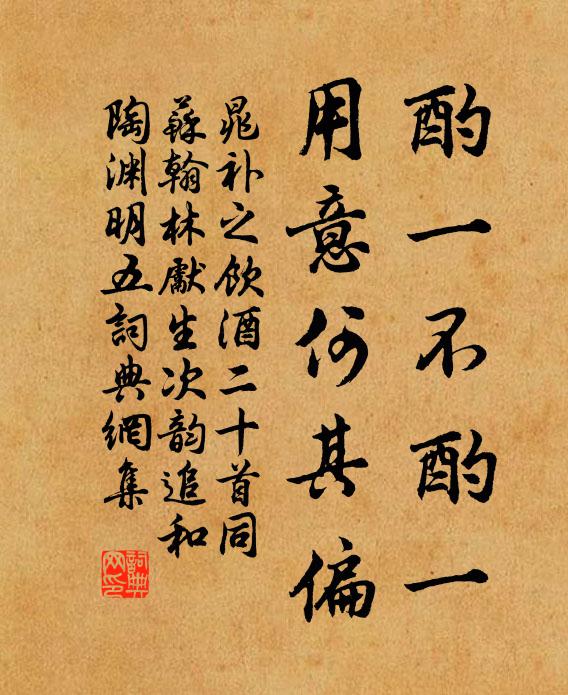 酌一不酌一
用意何其偏
晁补之飲酒二十首同
蘇翰林獻生次韵追和
陶渊明五詞典網集
詞典
网印